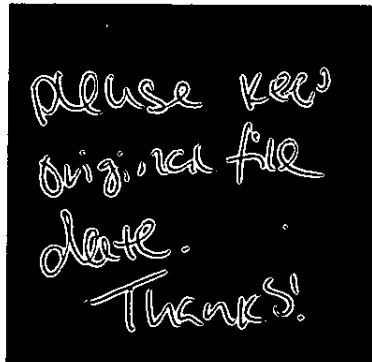 please keep
original file
date.
Thanks!